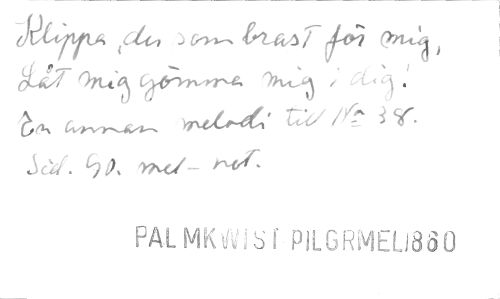 Klippa, du som brast för mig,
Låt mig gömma mig i dig!
En annan melodi till No 38.
Sid. 90. mel-not.
PALMKWIST PILGRMEL1860